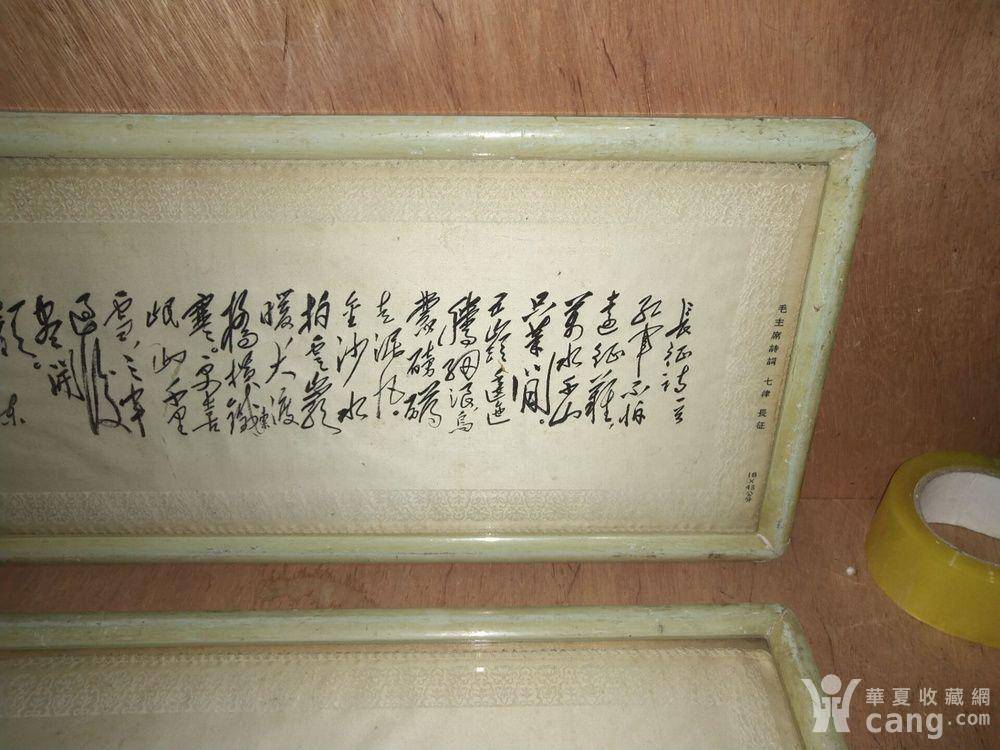 毛主席詩詞 七律 長征
18×43公分
長征詩一首
紅軍不怕
遠征難，
萬水千山
只等閒。
五嶺逶迤
騰細浪，烏
蒙磅礴
走泥丸。
金沙水
拍雲崖
暖，大渡
橋橫鐵索
寒。更喜
岷山千里
雪，三軍
過後
盡開
顏。
東
華夏收藏網
cang.com